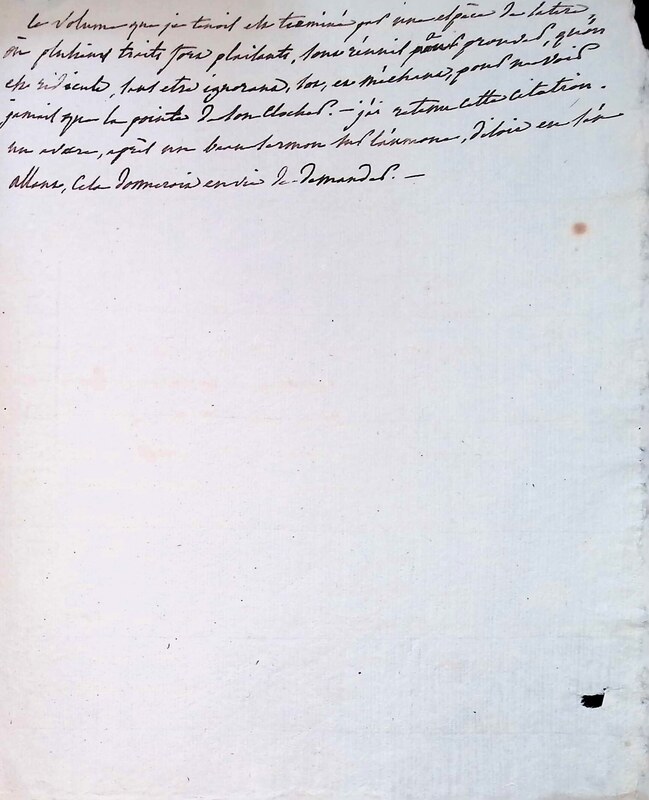 le volume que je tenois est terminé par une espèce de satire
où plusieurs traits fort plaisants, sont réunis pour prouver, qu'on
est ridicule, sans etre ignorant, sot, et méchant, pour ne voir
jamais que la pointe de son clocher. — j'ai retenu cette citation.
un avare, après un beau sermon sur l'aumone, disoit en s'en
allant, cela donneroit envie de demander. —